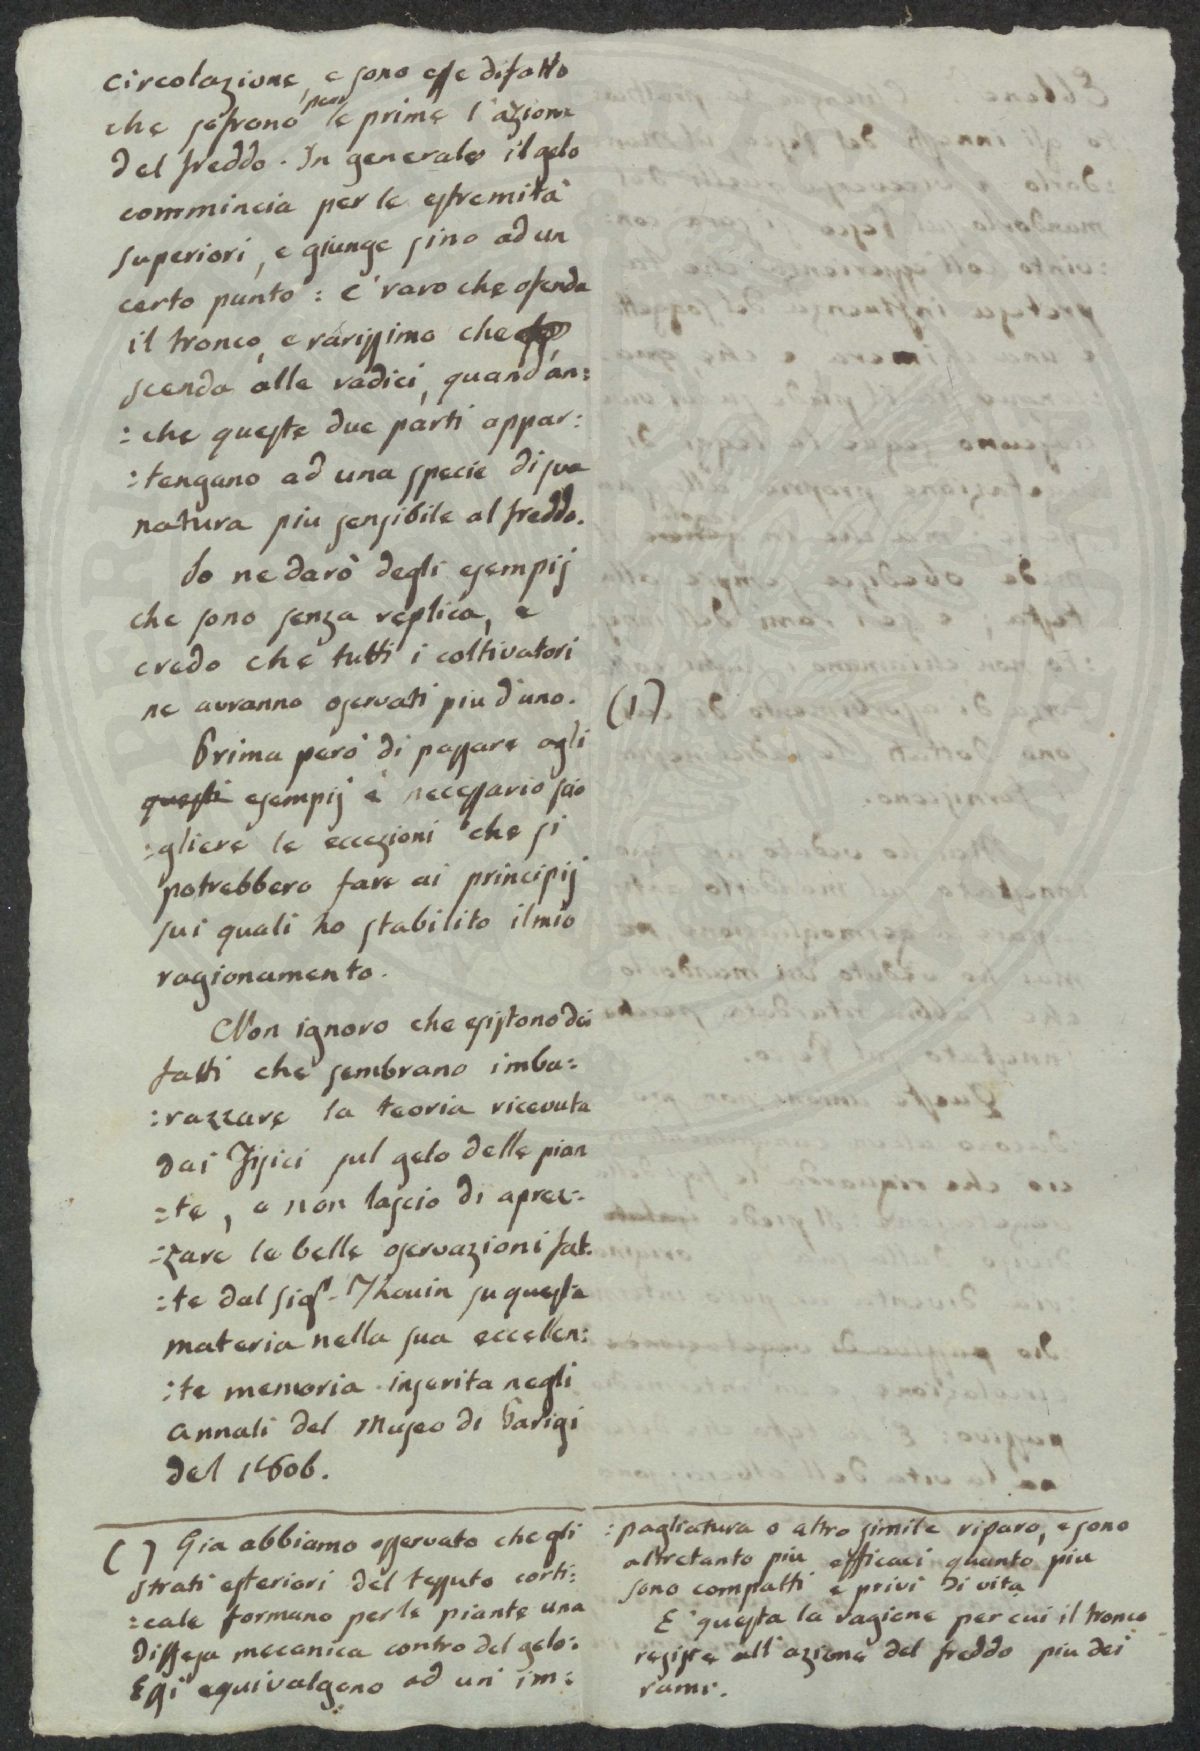 circolazione, e sono esse difatto
che sofrono pure le prime l'azione
del freddo. In generale il gelo
commincia per le estremità
superiori, e giunge sino ad un
certo punto: è raro che ofenda
il tronco, e rarissimo che
scenda alle radici, quand'an:
:che queste due parti appar:
:tengano ad una specie di sua
natura piu sensibile al freddo.
Io ne darò degli esempij
che sono senza replica, e
credo che tutti i coltivatori
ne avranno oservati piu d'uno.
(1)
Prima però di passare agli
questi esempij è necessario scio
:gliere le eccezioni che si
potrebbero fare ai principij
sui quali ho stabilito il mio
ragionamento.
Non ignoro che esistono dei
fatti che sembrano imba:
:razzare la teoria ricevuta
dai Fisici sul gelo delle pian
:te, e non lascio di aprez:
:zare le belle oservazioni fat:
:te dal sigr. Thouin su questa
materia nella sua eccellen:
:te memoria inserita negli
annali del Museo di Parigi
del 1806.
( ) Gia abbiamo osservato che gli
strati esteriori del tessuto corti:
:cale formano per le piante una
diffesa mecanica contro del gelo:
Essi equivalgono ad un' im:
:pagliatura o altro simile riparo, e sono
altretanto piu efficaci quanto piu
sono compatti e privi di vita
E' questa la ragione per cui il tronco
resiste all'azione del freddo piu dei
rami.